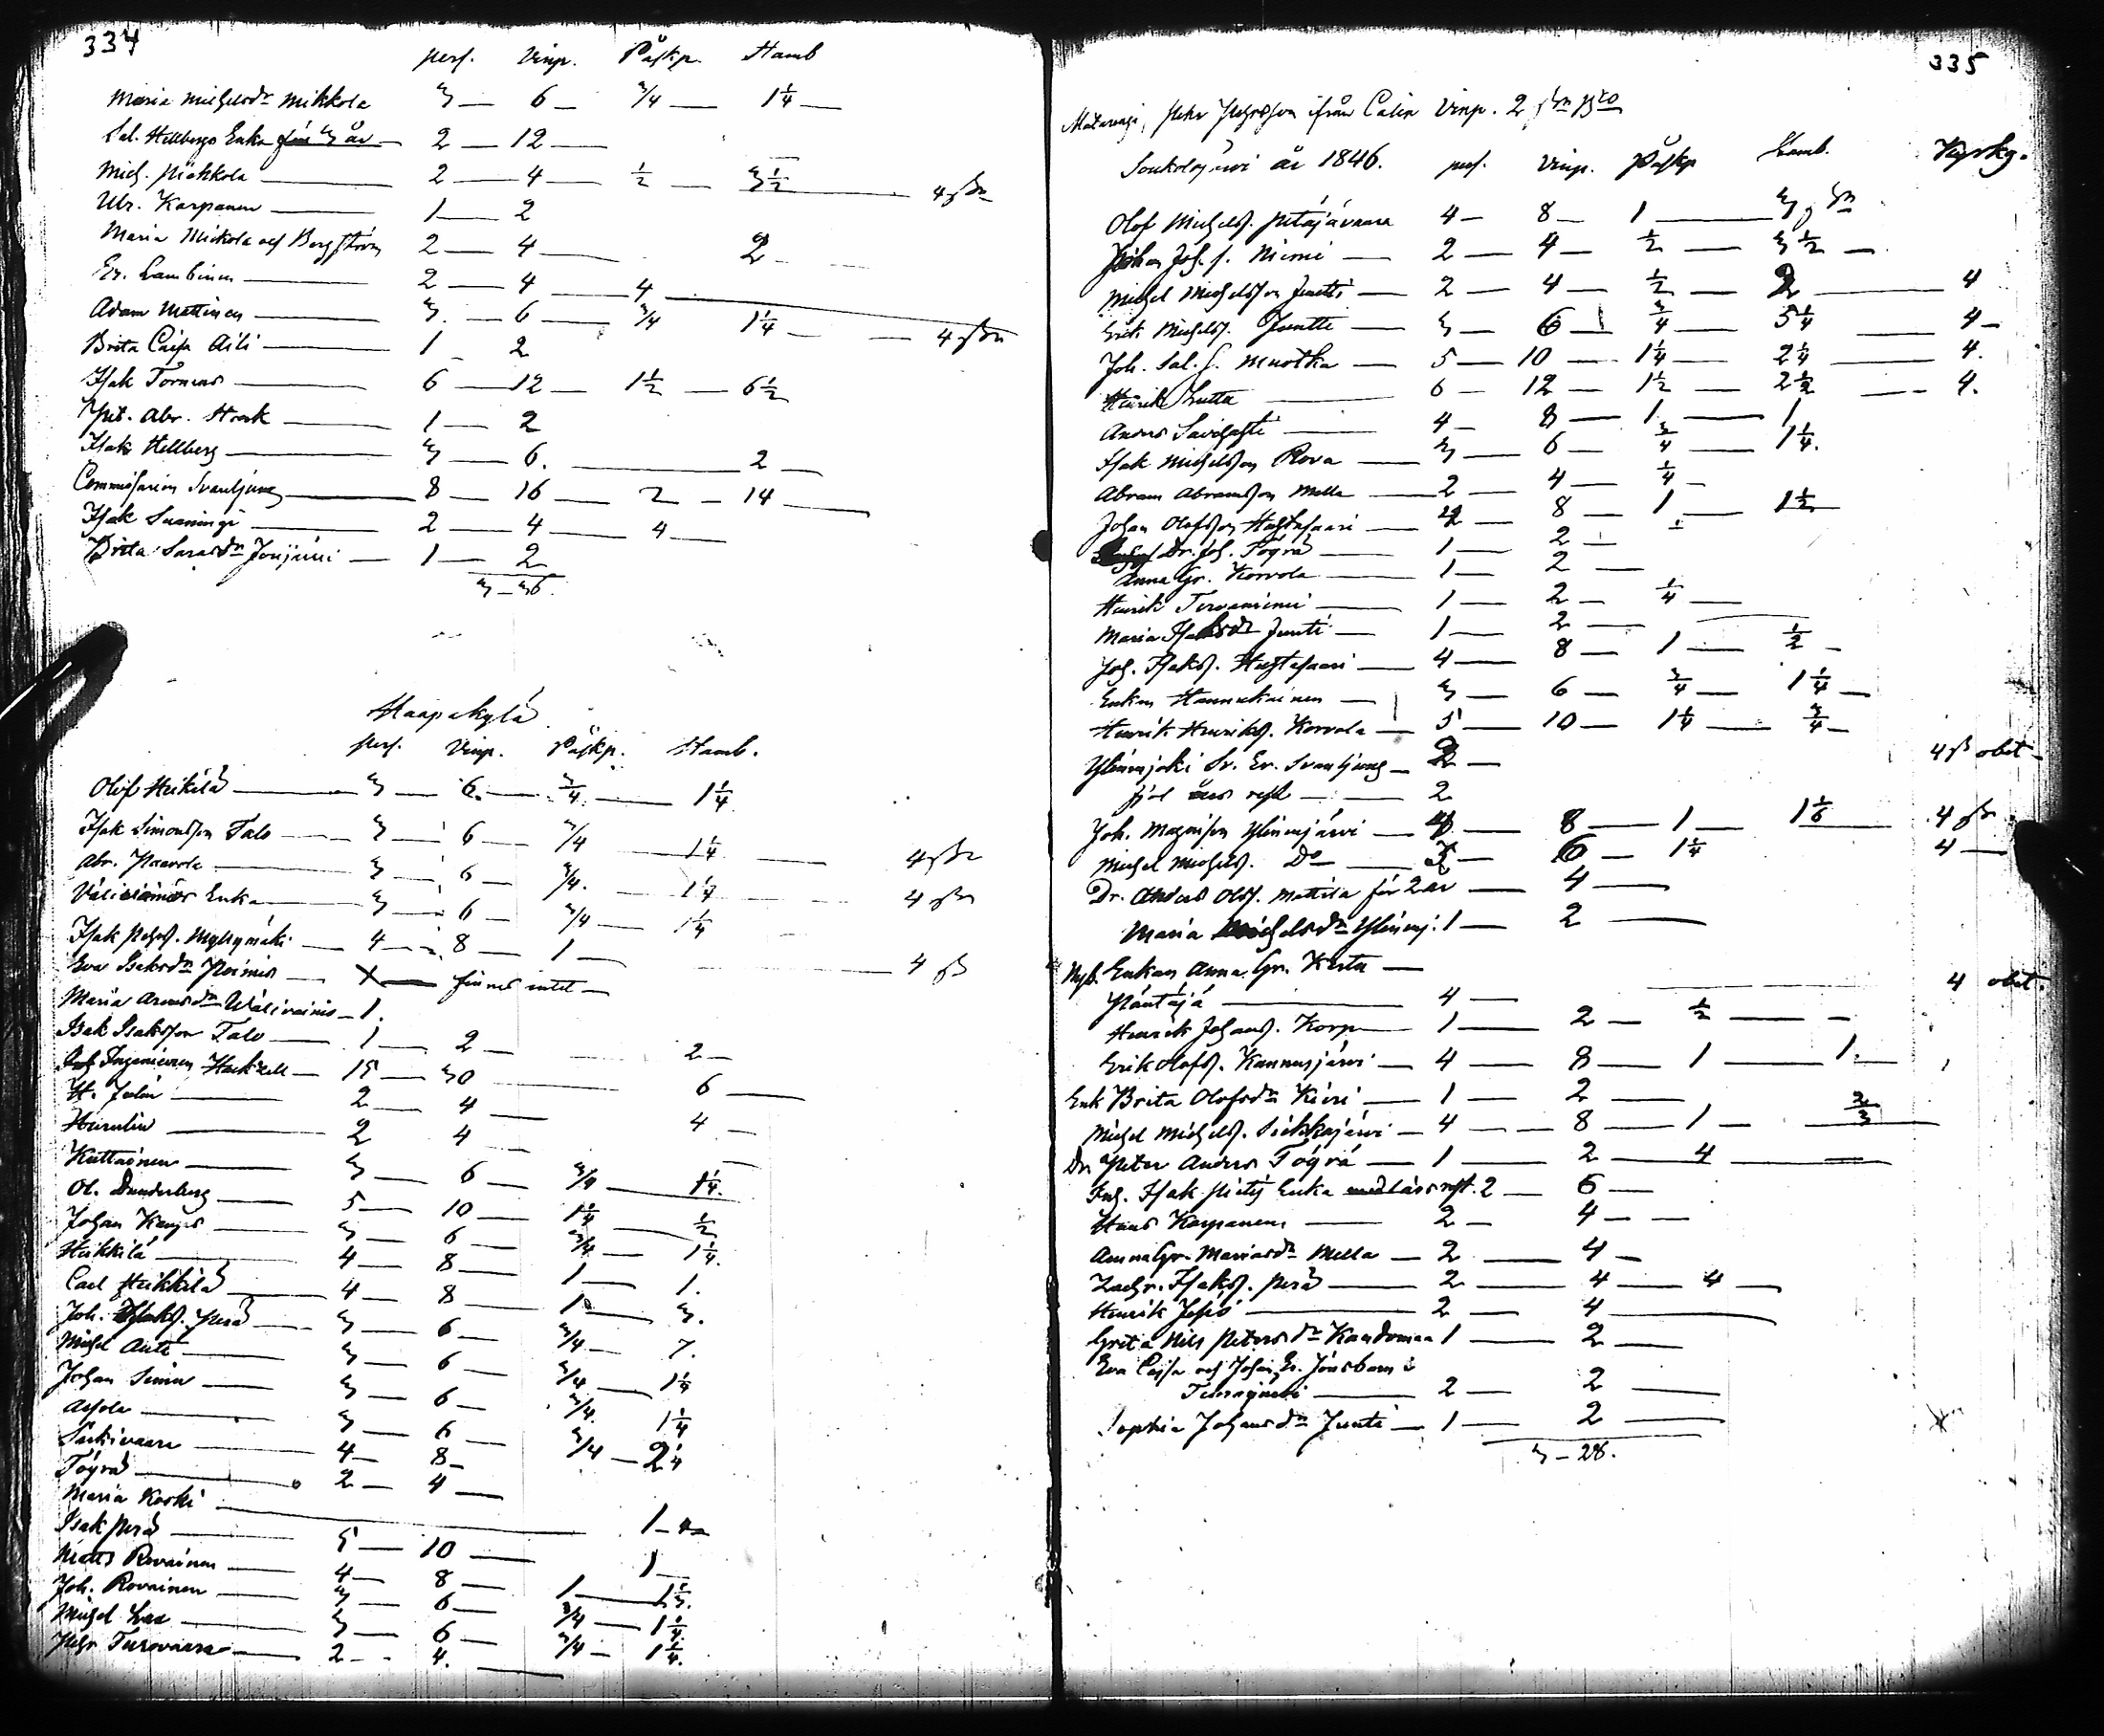 334
pers. Vinp. Påskp. Stamb
Maria Michelsdr Mikkola 3 — 6 — 3/4 — 1 1/4 —
Sal. Hellbergs Enka för 3 år — 2 — 12 —
Mich. Mikkola — 2 — 4 — 1/2 — 3 1/2 — 4 sk
Ulr. Karpanen — 1 — 2
Maria Mickola och Bergström 2 — 4 — 2
Er. Lambinen — 2 — 4 — 4
Adam Mattinen — 3 — 6 — 3/4 1 1/4 — 4 sk
Brita Caisa Aili — 1 — 2
Isak Torneus — 6 — 12 — 1 1/2 — 6 1/2
Abr. Stark — 1 — 2
Isak Hellberg — 3 — 6. — 2 —
Commissarien Svanljung — 8 — 16 — 2 — 14 —
Isak Suaningi — 2 — 4 — 4 —
Brita Sarasdr Joujärvi — 1 — 2
3 — 36.
Haapakylä
pers. Vinp. Påskp. Stamb.
Olof Heikilä — 3 — 6. — 3/4 — 1 1/4
Isak Simonsson Talo — 3 — 6 — 3/4 1 1/4 — 4 sk
Abr. Paavola — 3 — 6 — 3/4. 1 1/4 — 4 sk
Enka — 3 — 6 — 3/4 — 1 1/4
Isak Pehrs. Myllymäki — 4 — 8 — 1 — 4 sk
Eva Isaksdr — X — finnes intet —
Maria — 1.
Isak Isaksson Talo — 1 — 2 — 2 —
Ingenieuren Hackzell — 15 — 30 — 6 —
H. Julin — 2 — 4 — 4 —
Heimlin — 2 4 —
Kuttainen — 3 — 6 3/4 — 1 1/4.
Ol. Dunderberg — 5 — 10 — 1 1/4 — 1/2
Johan Kangas — 3 — 6 — 3/4 — 1 1/4.
Heikkilä — 4 — 8 — 1 — 1.
Carl Heikkilä — 4 — 8 — 1 — 3.
Joh. Isaks. Perä — 3 — 6 — 3/4 — 7.
Michel Anti — 3 — 6 — 3/4 — 1 1/4
Johan Simu — 3 — 6 — 3/4. 1 1/4
Asola — 3 — 6 — 3/4 — 2 1/4
Särkivaara — 4 — 8 —
Töyrä — 2 — 4 —
Maria Koski — 1
Isak Perä — 5 — 10 — 1 —
Matts Rovainen — 4 — 8 — 1 — 1 1/3.
Joh. Rovainen — 3 — 6 — 3/4 — 1 1/4.
Michel Lax — 3 — 6 — 3/4 — 1 1/4.
Pehr Turovaara — 2 — 4. —
335
Matarengi, Pehr Pehrsson ifrån Calix Vinp. 2 sk
Soukolojärvi år 1846. pers. Vinp. Påskp Stamb. Kyrkg.
Olof Michels. Petäjävaara 4 — 8 — 1 — 3 sk
Johan Joh. s. Niemi — 2 — 4 — 1/2 — 3 1/2 —
Michel Michelsson Juntti — 2 — 4 — 1/2 — 2 — 4
Erik Michels. Juntti — 3 — 6 — 3/4 — 5 1/4 — 4 —
Joh. Sal. s. Muotka — 5 — 10 — 1 1/4 — 2 1/4 — 4.
Henrik Lutta — 6 — 12 — 1 1/2 — 2 1/2 — 4.
Anders — 4 — 8 — 1 — 1
Isak Michelsson Rova — 3 — 6 — 3/4 — 1 1/4.
Abram Abramsson Mella — 2 — 4 — 1/4 —
Johan Olofsson — 4 — 8 — 1 — 1 1/2
Dr. Joh. Töyrä — 1 — 2 —
Anna Gr. Korvola — 1 — 2 —
Henrik Tervaniemi — 1 — 2 — 1/4 —
Maria Isaksdr Junti — 1 — 2 —
Joh. Isaks. — 4 — 8 — 1 — 1/2 —
Enkan Hannukainen — 3 — 6 — 3/4 — 1 1/4 —
Henrik Henriks. Korvola — 5 — 10 — 1 1/4 — 3/4 —
Ylinenjoki Sr. Er. Svanljung — 2 — 4 sk obet —
fjol års rest — 2
Joh. Magnison Ylinenjärvi — 4 — 8 — 1 — 1 1/6 — 4 sk
Michel Michels. Do — 3 — 6 — 1 1/4 4 —
Dr. Anders Olofs. Mattila för 2 år — 4 —
Maria Michelsdr Ylinenj. 1 — 2 —
Nyb. Enkan Anna Gr. Kerttu — 4 obet.
Mäntäjä — 4 —
Henrik Johans. Korpi — 1 — 2 — 1/2 — —
Erik Olofs. Kannusjärvi — 4 — 8 — 1 — 1. —
Enk Brita Olofsdr Kieri — 1 — 2 —
Michel Michels. Siekkajärvi — 4 — 8 — 1 — 2/3
Dr. Peter Anders Töyrä — 1 — 2 — 4 —
Inh. Isak Enka rest. 2 — 6 —
Hans Karpanen — 2 — 4 — —
Anna Gr. Mariasdr Mella — 2 — 4 —
Zachr. Isaks. Perä — 2 — 4 — 4 —
Henrik — 2 — 4 —
Greta Nils Petersdr Kandomaa 1 — 2 —
Eva Cajsa och Johan Er. Jönsbarn i
— 2 — 2 —
Sophia Johansdr Junti — 1 — 2 —
3 — 28.